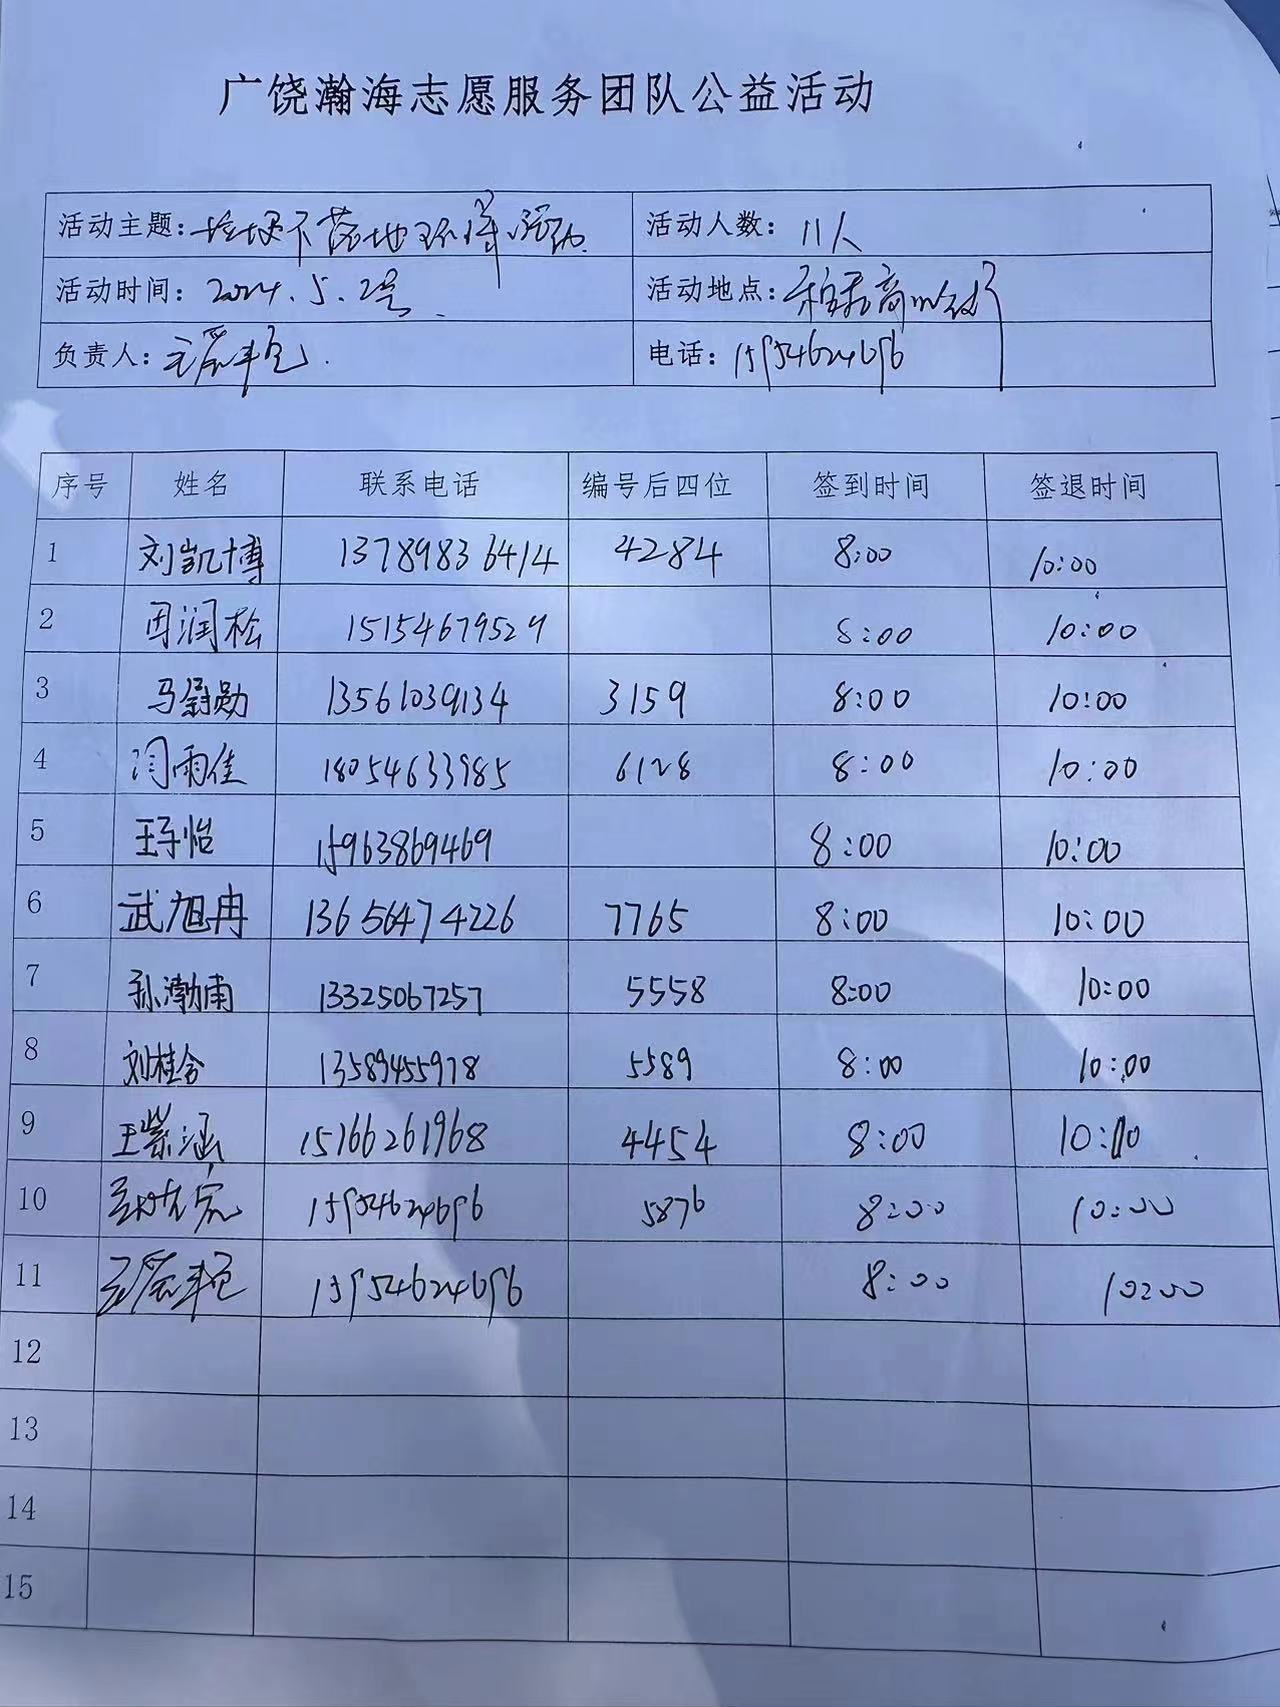 广饶瀚海志愿服务团队公益活动
活动主题:垃圾不落地环保活动 活动人数: 11人
活动时间: 2024.5.2号 活动地点:
负责人: 电话: 15954624696
序号 姓名 联系电话 编号后四位 签到时间 签退时间
1 刘凯博 13789836414 4284 8:00 10:00
2 周润松 15154679529 8:00 10:00
3 马尉勋 13561039134 3159 8:00 10:00
4 闫雨佳 18054633985 6128 8:00 10:00
5 王子怡 15963869469 8:00 10:00
6 武旭冉 13656474226 7765 8:00 10:00
7 孙渤南 13325067257 5558 8:00 10:00
8 刘桂合 13589455978 5589 8:00 10:00
9 王紫涵 15166261968 4454 8:00 10:00
10 15954624696 5876 8:00 10:00
11 15954624696 8:00 10:00
12
13
14
15